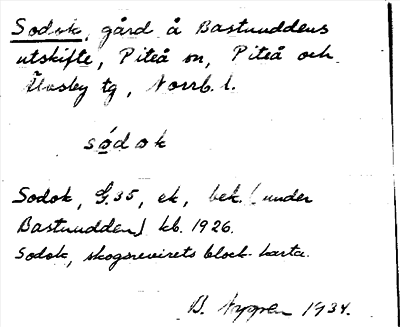 Sodok, gård å Bastuuddens
utskifte, Piteå sn, Piteå och
Älvsby tg, Norrb. l.
sódok
Sodok, G.35, ek, bek. (under
Bastuudden) kb. 1926.
Sodok, skogsrevirets block-karta.
B. Nygren 1934.